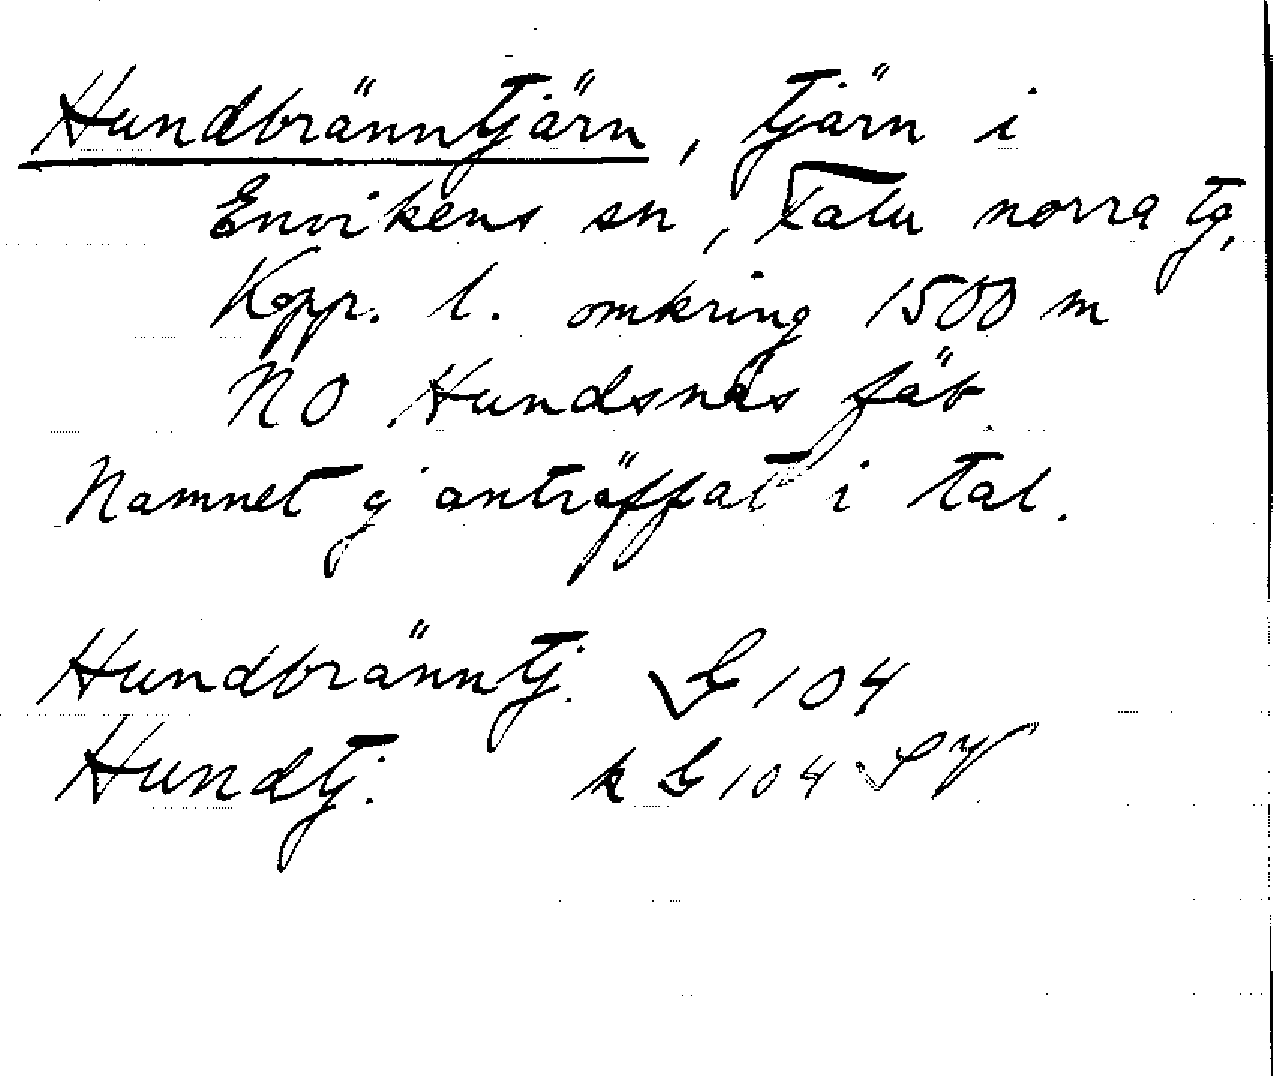 Hundbränntjärn, tjärn i
Envikens sn, Falu norra tg,
Kopp. l. omkring 1500 m
NO Hundsnäs fäb.
Namnet ej anträffat i tal.
Hundbränntj. G 104
Hundtj. k G 104 SV